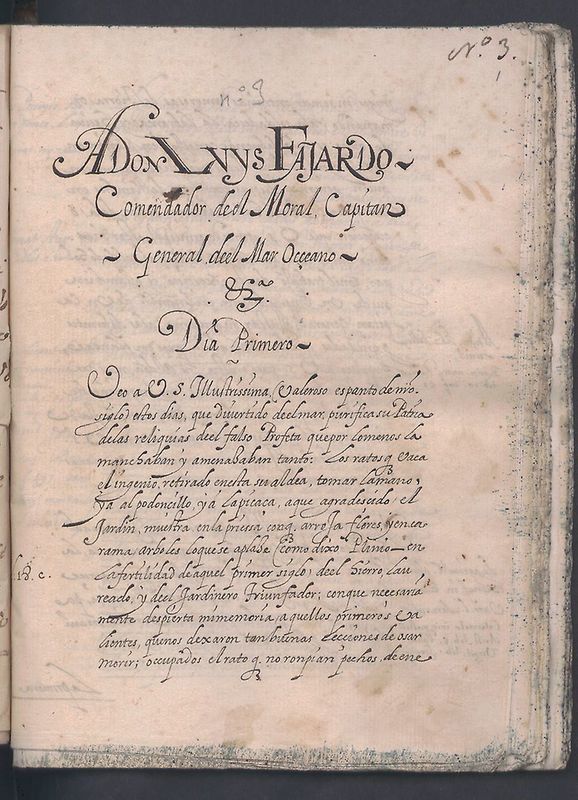 Nº 3.
nº 3
A DON LVYS FAJARDO
Comendador de el Moral, Capitan
General, de el Mar Occeano
&ª.
Dia Primero
Veo a V. S. Illustrissima, (Valeroso espanto de nrō.
siglo) estos dias, que divertido de el mar, purifica su Patria
de las reliquias de el falso Profeta que por lo menos la
manchaban y amenazaban tanto: Los ratos q vaca
el ingenio, retirado en esta sea aldea, tomar la mano,
ya al podoncillo, ya la picaça, a que agradescido, el
Jardin, muestra en la priessa conq. arroja flores, y enca
rama arboles loque se aplaze (como dixo Plinio en
la fertilidad de aquel primer siglo) de el hierro, Lau
reado, y de el Jardinero triunfador; con que necesaria
mente despierta mi memoria, a quellos primeros va
lientes, que nos dexaron tan buenas lecciones de osar
morir; occupados el rato q. no ronpian pechos, de ene
18. c.